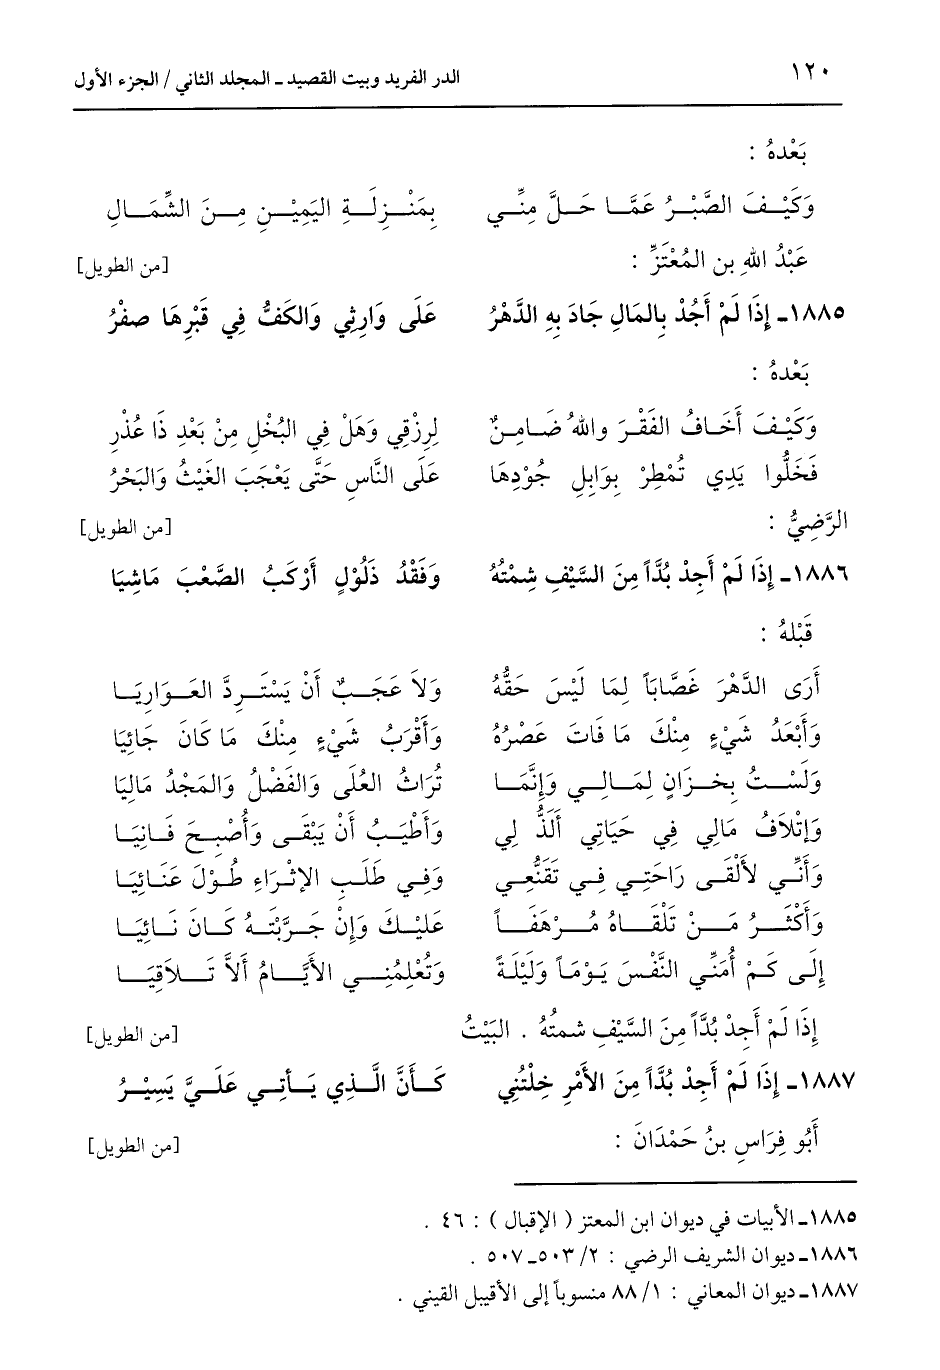 ١٢٠ الدر الفريد وبيت القصيد ـ المجلد الثاني / الجزء الأول
بَعْدهُ :
وَكَيْفَ الصَّبْرُ عَمَّا حَلَّ مِنِّي بِمَنْزِلَةِ اليَمِيْنِ مِنَ الشِّمَالِ
عَبْدُ اللهِ بن المُعْتَزِّ : [من الطويل]
١٨٨٥ـ إِذَا لَمْ أَجُدْ بِالمَالِ جَادَ بِهِ الدَّهْرُ عَلَى وَارِثِي وَالكَفُّ فِي قَبْرِهَا صفْرُ
بَعْدهُ :
وَكَيْفَ أَخَافُ الفَقْرَ واللهُ ضَامِنٌ لِرِزْقِي وَهَلْ فِي البُخْلِ مِنْ بَعْدِ ذَا عُذْرِ
فَخَلُّوا يَدِي تُمْطِرْ بِوَابِلِ جُوْدِهَا عَلَى النَّاسِ حَتَّى يَعْجَبَ الغَيْثُ وَالبَحْرُ
الرَّضِيُّ : [من الطويل]
١٨٨٦ـ إِذَا لَمْ أَجِدْ بُدَّاً مِنَ السَّيْفِ شِمْتُهُ وَفَقْدُ ذَلُوْلٍ أَرْكَبُ الصَّعْبَ مَاشِيَا
قَبْلهُ :
أَرَى الدَّهْرَ غَصَّابَاً لِمَا لَيْسَ حَقُّهُ وَلاَ عَجَبٌ أَنْ يَسْتَرِدَّ العَوَارِيَا
وَأَبْعَدُ شَيْءٍ مِنْكَ مَا فَاتَ عَصْرُهُ وَأَقْرَبُ شَيْءٍ مِنْكَ مَا كَانَ جَائِيَا
وَلَسْتُ بِخزَانٍ لِمَالِي وَإِنَّمَا تُرَاثُ العُلَى وَالفَضْلُ وَالمَجْدُ مَالِيَا
وَإِتْلاَفُ مَالِي فِي حَيَاتِي أَلَذُّ لِي وَأَطْيَبُ أَنْ يَبْقَى وَأُصْبِحَ فَانِيَا
وَأَنِّي لأَلْقَى رَاحَتِي فِي تَقَنُّعِي وَفِي طَلَبِ الإِثْرَاءِ طُوْلَ عَنَائِيَا
وَأَكْثَرُ مَنْ تَلْقَاهُ مُرْهَفَاً عَلَيْكَ وَإِنْ جَرَّبْتَهُ كَانَ نَائِيَا
إِلَى كَمْ أُمَنِّي النَّفْسَ يَوْمَاً وَلَيْلَةً وَتُعْلِمُنِي الأَيَّامُ أَلاَّ تَلاَقِيَا
إِذَا لَمْ أَجِدْ بُدَّاً مِنَ السَّيْفِ شمتُهُ . البَيْتُ [من الطويل]
١٨٨٧ـ إِذَا لَمْ أَجِدْ بُدَّاً مِنَ الأَمْرِ خِلْتُنِي كَأَنَّ الَّذِي يَأتِي عَلَيَّ يَسِيْرُ
أَبُو فِرَاسِ بنُ حَمْدَانَ : [من الطويل]
١٨٨٥ـ الأبيات في ديوان ابن المعتز ( الإقبال ) : ٤٦ .
١٨٨٦ـ ديوان الشريف الرضي : ٢/ ٥٠٣ـ ٥٠٧ .
١٨٨٧ـ ديوان المعاني : ١/ ٨٨ منسوباً إلى الأقيبل القيني .